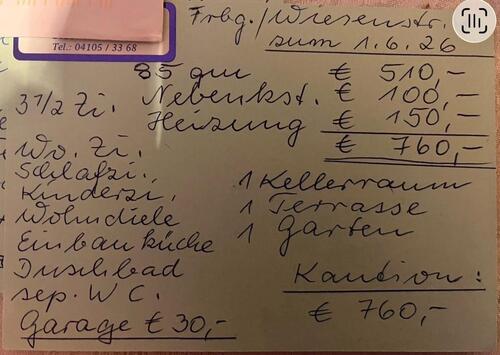 Tel.: 04105 / 33 68
Frbg. / Wiesenstr.
zum 1.6.26
85 qm € 510,-
3 1/2 Zi. Nebenkst. € 100,-
Heizung € 150,-
€ 760,-
Wo. Zi.
Schlafzi.
Kinderzi.
Wohndiele
Einbauküche
Duschbad
sep. WC.
Garage € 30,-
1 Kellerraum
1 Terrasse
1 Garten
Kaution:
€ 760,-